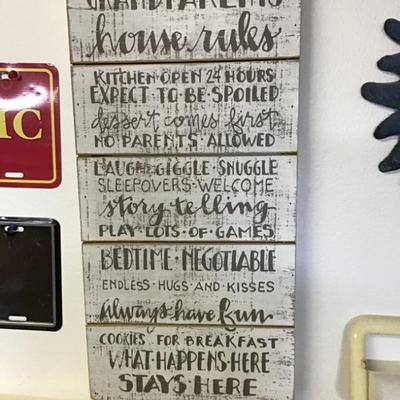 GRANDPARENTS
house rules
KITCHEN OPEN 24 HOURS
EXPECT TO BE SPOILED
dessert comes first
NO PARENTS ALLOWED
LAUGH · GIGGLE · SNUGGLE
SLEEPOVERS · WELCOME
story telling
PLAY · LOTS · OF · GAMES
BEDTIME · NEGOTIABLE
ENDLESS · HUGS · AND · KISSES
always have fun
COOKIES FOR BREAKFAST
WHAT · HAPPENS · HERE
STAYS HERE
IC